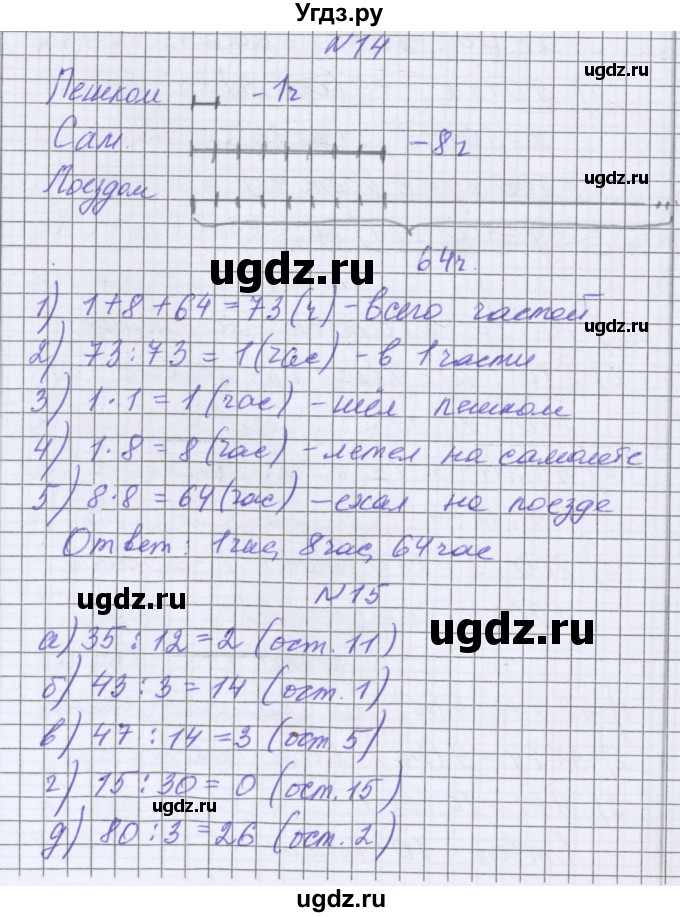 Угдз.ру
N14
ugdz.ru
Пешком - 1ч
Сам. - 8ч
ugdz.ru
Поездом
ugdz.ru
64ч.
1) 1+8+64=73(ч) - всего частей
ugdz.ru
2) 73:73 = 1(час) - в 1 части
3) 1·1=1(час) - шёл пешком
4) 1·8=8(час) - летел на самолете
5) 8·8=64(час) - ехал на поезде
Ответ: 1час, 8час, 64час
ugdz.ru
N15
ugdz.ru
а) 35:12=2 (ост. 11)
б) 43:3=14 (ост. 1)
в) 47:14=3 (ост 5)
г) 15:30=0 (ост. 15)
ugdz.ru
д) 80:3=26 (ост. 2)
ugdz.ru